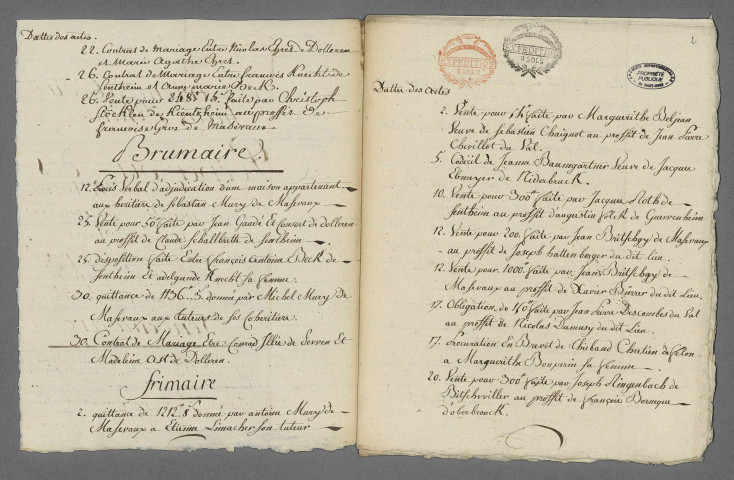 Dattes des actes.
22. Contrat de mariage Entre Nicolas Eyret Dolleren
et Marie Agathe Eyret.
26. Contrat de Mariage Entre francois Knecht de
Sentheim et anne marie Beck.
26. Vente pour 248# 15s faite par Christoph
Stöcklen de Kientzheim au proffit de
francoise Gros de Massevaux
Brumaire.
12. Procès Verbal d'adjudication d'une maison appartenant
aux heritiers de Sebastien Mury de Massevaux
25. Vente pour 50# faite par Jean Gaudé et Consort de dolleren
au proffit de Claude Schaltbrett de Sentheim
25. disposition faite Entre françois antoine Beck de
Sentheim et adelgunde Knecht sa femme
30. quittance de 1136# donné par Michel Mury de
Massevaux aux tuteurs de ses Coheritiers
30. Contrat de Mariage Etre Conrad Illis de Serven Et
Madeleine de Dolleren.
frimaire
2. quittance de 1212# 8 donné par antoine Mury de
Massevaux a Etienne Limacher son tuteur
EXPEDITION
9 SOLS
EXPEDITION
9 SOLS
2
PROPRIÉTÉ
PUBLIQUE
Dattes des actes
2. Vente pour faite par Marguerithe Beljean
Veuve de Sebastien Chaignot au proffit de Jean Pierre
Chevillot du Val.
5. Codicil de Jeanne Baumgärtner Veuve de Jacque
Ebmeyer de Niderbruck.
10. Vente pour 300# faite par Jacque Hoth de
Sentheim au proffit d'augustin Folck de Guevenheim
12. Vente pour 200. faite par Jean Brütschgy de Massevaux
au proffit de Joseph hattenberger du dit lieu.
12. Vente pour 1000 faite par Jean Brütschgy de
Massevaux au proffit de Xavier Bihrer du dit Lieu.
17. Obligation de faite par Jean Pierre Descombes du Val
au proffit de Nicolas Dumusy du dit Lieu.
17. Procuration En Brevet de Thiebaud Chretien de
a Margueritthe Bonperin sa femme.
20. Vente pour 300# faite par Joseph Ringenbach de
Bitschviller au proffit de françois Bormque
d'oberbrouck.